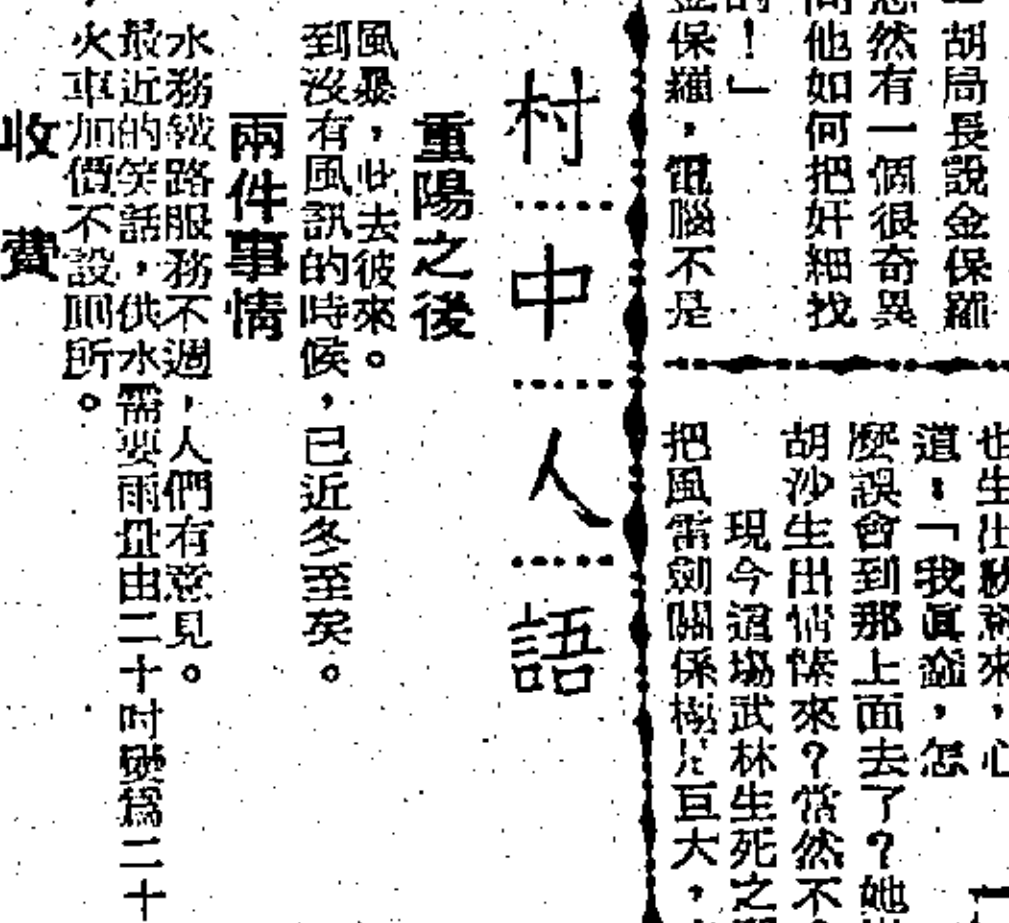 胡局長說金保羅
忽然有一個很奇異
問他如何把奸細找
的！」
金保羅，電腦不是
也生出
來，心
道：「我真
，怎
麼誤會到那上面去了？她
胡沙生出情愫來？當然不
現今這場武林生死之
把風雷劍關係極是巨大，
村中人語
重陽之後
風暴，此去彼來。
到沒有風訊的時候，已近冬至矣。
兩件事情
水務鐵路服務不週，人們有意見。
最近的笑話，供水需要雨量由二十吋變為二十
，火車加價不設廁所。
收費